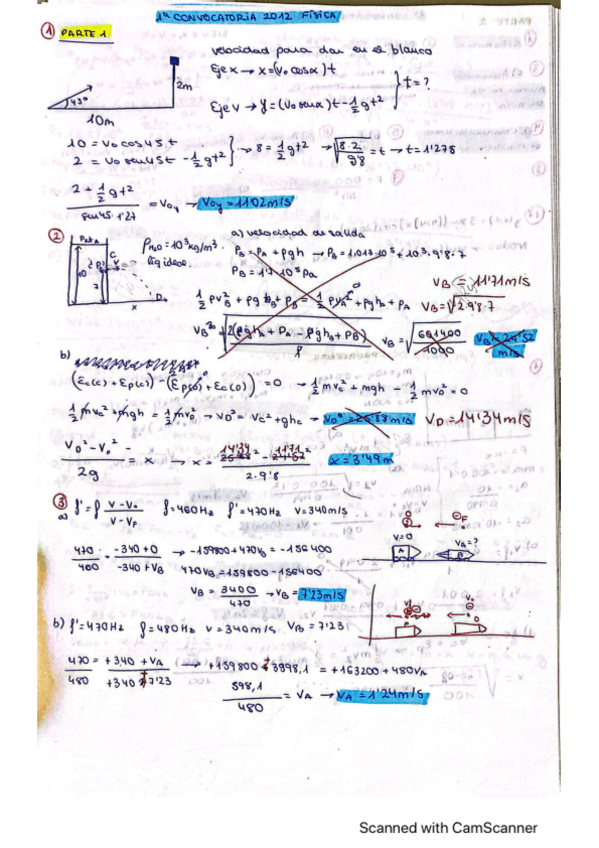 1ª CONVOCATORIA 2012 FÍSICA
1 PARTE 1
velocidad para dar en el blanco
Eje x → x = (v₀ cosα) t
Eje y → y = (v₀ senα) t - 1/2 gt²
t = ?
45°
2m
10m
10 = v₀ cos 45 t
2 = v₀ sen 45 t - 1/2 gt²
→ 8 = 1/2 gt² → √(8·2/9'8) = t → t = 1'278
(2 + 1/2 gt²) / (sen 45 · 1'27) = v₀y → v₀y = 11'02 m/s
2
ρH₂O = 10³ kg/m³.
líq ideal.
a) velocidad de salida
P_B = P_A + ρgh → P_B = 1.013·10⁵ + 10³·9.8·7
P_B = 1.7·10⁵ Pa
v_B = 11'71 m/s
v_B = √(2·9.8·7)
1/2 ρv_B² + ρgh_B + P_B = 1/2 ρv_A² + ρgh_A + P_A
v_B = √(2(ρgh_A + P_A - ρgh_B + P_B) / ρ)
v_B = √(601400 / 1000)
v_B = 24'52 m/s
b)
(Ec(c) + Ep(c)) - (Ep(D) + Ec(D)) = 0 → 1/2 mv_c² + mgh - 1/2 mv_D² = 0
1/2 mv_c² + mgh = 1/2 mv_D² → v_D² = v_c² + ghc → v_D = 14'34 m/s
(v_D² - v₀²) / 2g = x → x = (14'34² - 11'71²) / 2·9'8
x = 3'49 m
3
a) f' = f (v - v₀) / (v - v_F) f = 460 Hz f' = 470 Hz v = 340 m/s
470/460 = (-340 + 0) / (-340 + v_B) → -159800 + 470v_B = -156400
470v_B = 159800 - 156400
v_B = 3400 / 470 → v_B = 7'23 m/s
v=0
v_B = ?
A
B
b) f' = 470 Hz f = 480 Hz v = 340 m/s v_B = 7'23
470/480 = (+340 + v_A) / (+340 + 7'23) → +159800 + 3398,1 = +163200 + 480v_A
598,1 / 480 = v_A → v_A = 1'24 m/s
Scanned with CamScanner